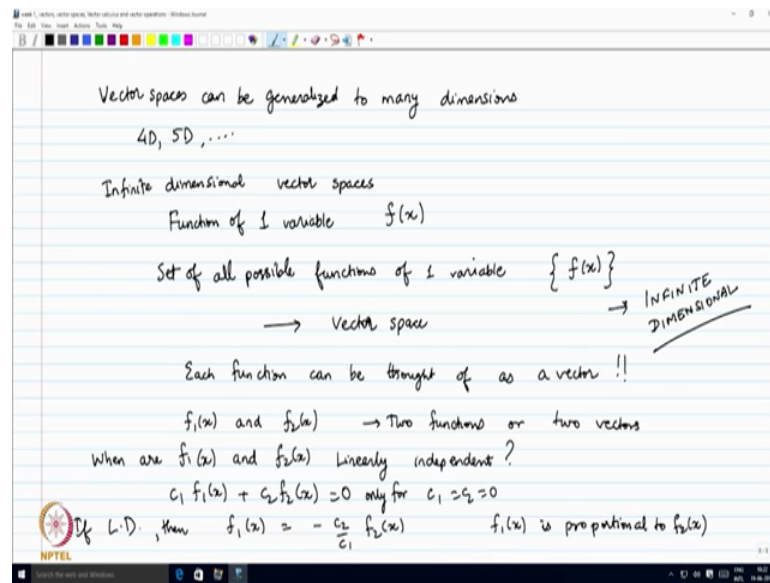 week 1_ vectors, vector spaces, Vector calculus and vector operations - Windows Journal
File Edit View Insert Actions Tools Help
Vector spaces can be generalized to many dimensions
4D, 5D, ....
Infinite dimensional vector spaces
Function of 1 variable f(x)
Set of all possible functions of 1 variable { f(x) }
→ INFINITE DIMENSIONAL
→ Vector space
Each function can be thought of as a vector !!
f₁(x) and f₂(x) → Two functions or two vectors
When are f₁(x) and f₂(x) Linearly independent ?
c₁ f₁(x) + c₂ f₂(x) = 0 only for c₁ = c₂ = 0
If L.D., then f₁(x) = - c₂/c₁ f₂(x) f₁(x) is proportional to f₂(x)
NPTEL
Search the web and Windows